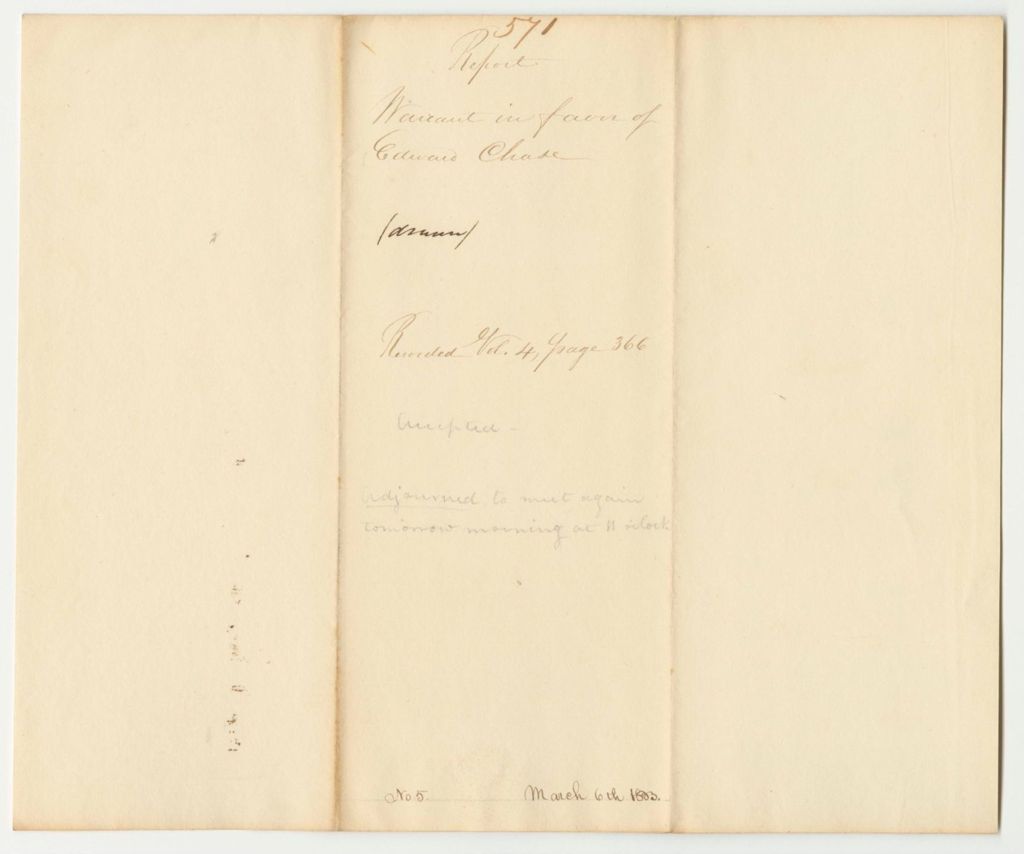 571
Report
Warrant in favor of
Edward Chase
(drawn)
Recorded Vol. 4, page 366
Accepted -
adjourned to meet again
tomorrow morning at 11 o'clock
No 5.
March 6th 1833.